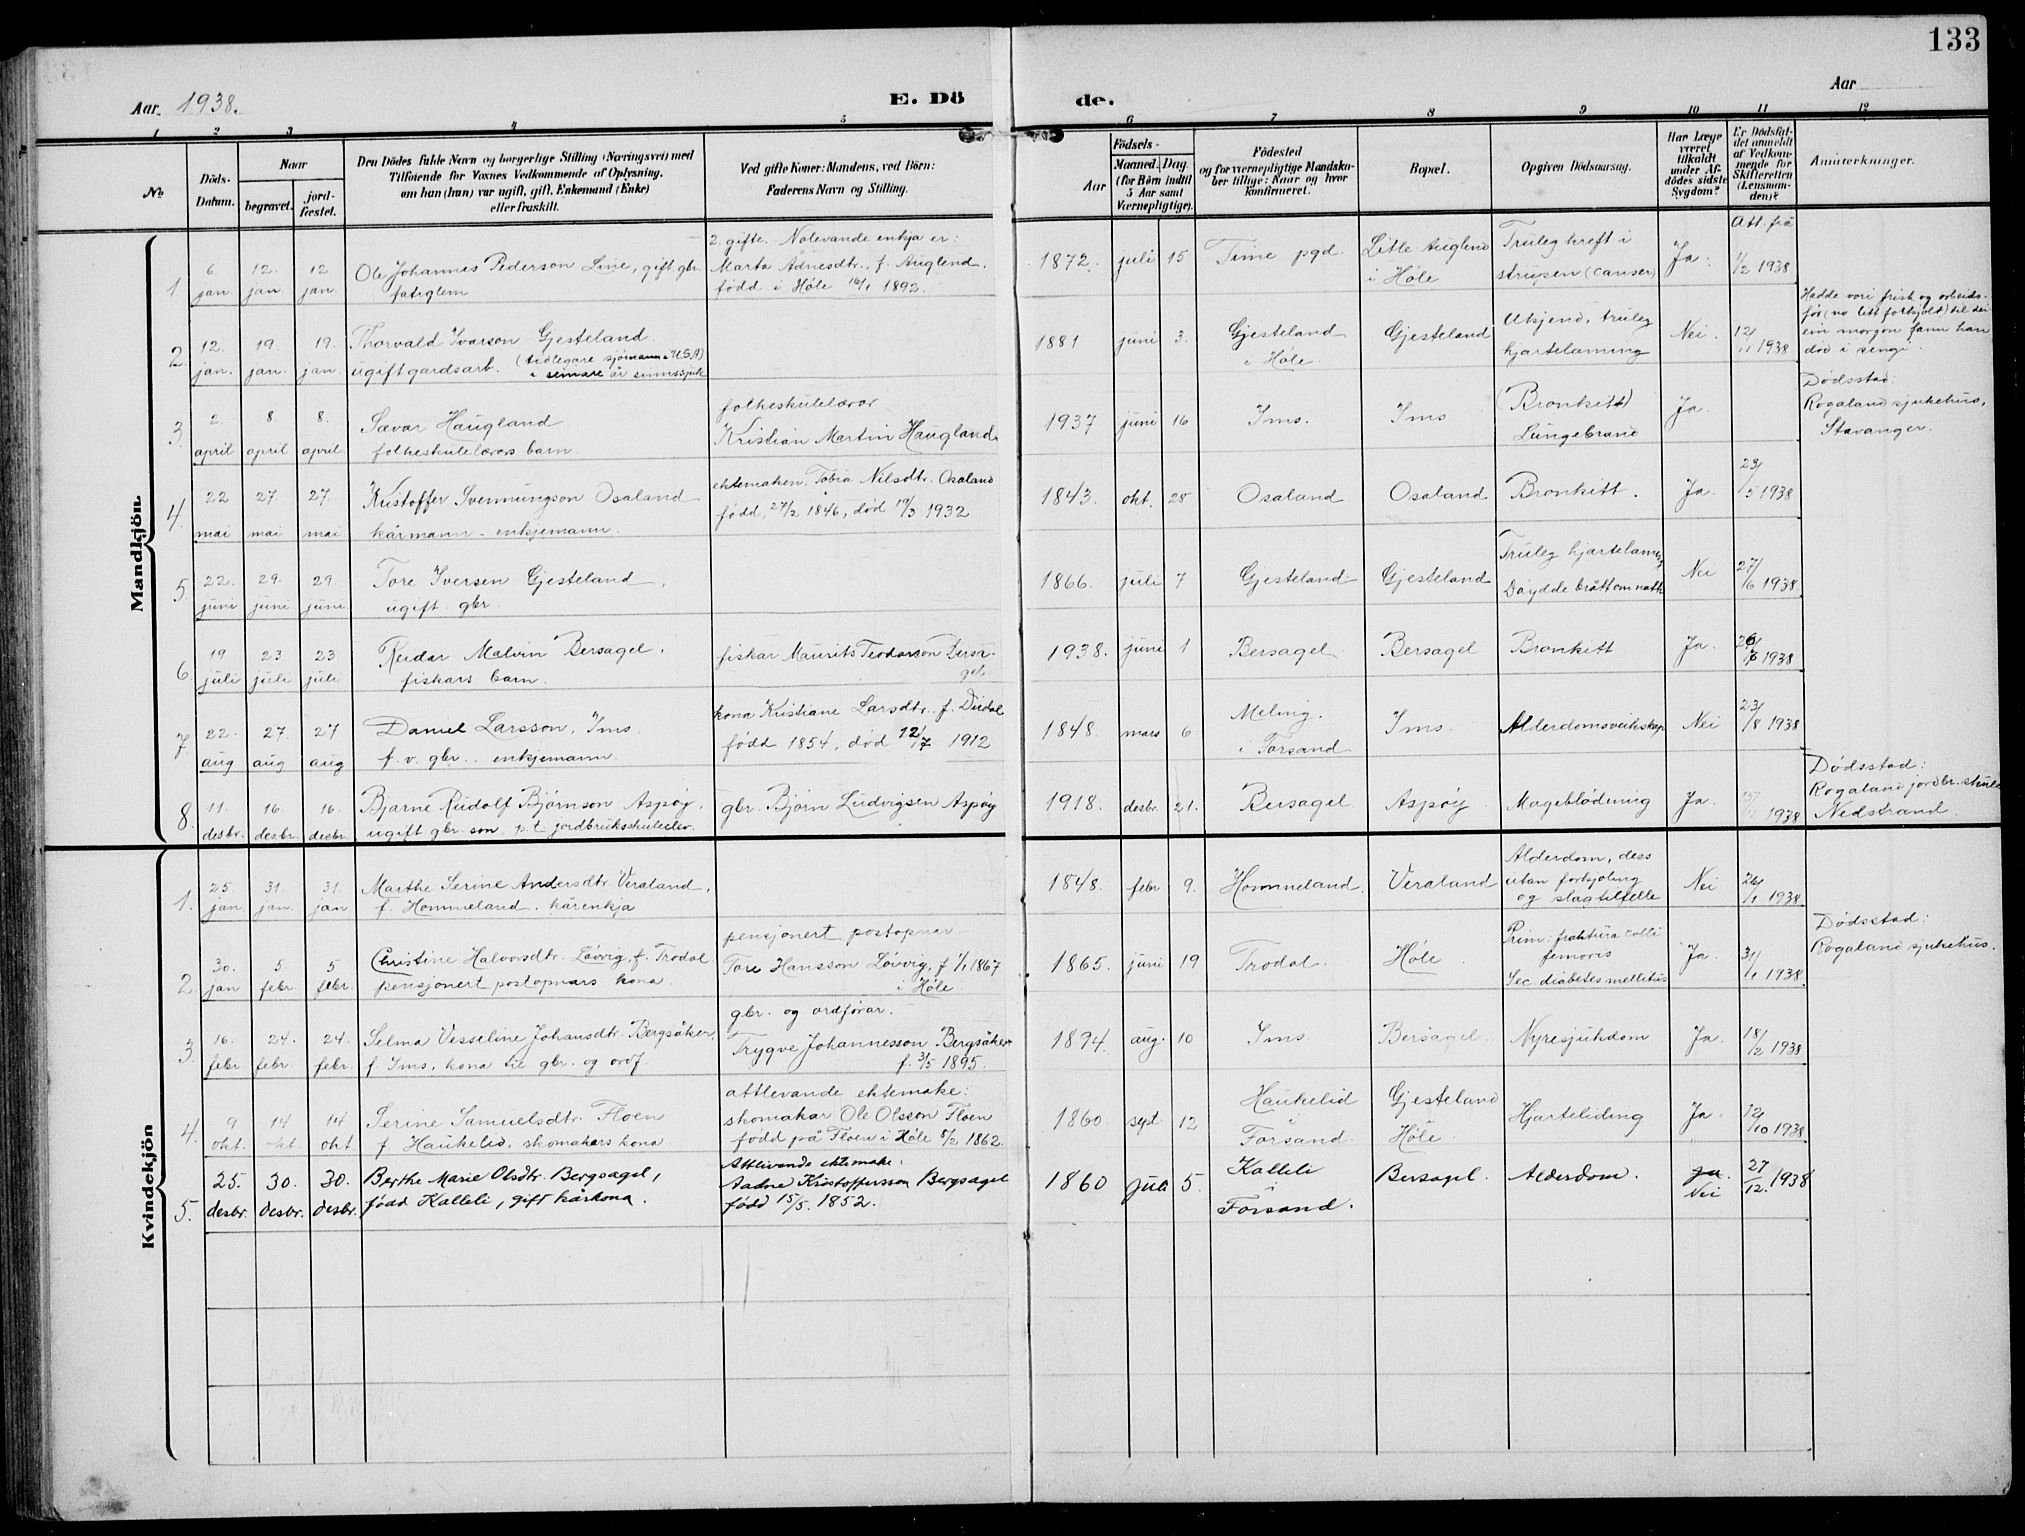 133
Aar 1938.
E. Dö
de.
Aar
1 2 3 4 5 6 7 8 9 10 11 12
No
Döds-
Datum.
Naar
begravet.
jord-
fæstet.
Den Dödes fulde Navn og borgerlige Stilling (Næringsvei) med
Tilföiende för Voxnes Vedkommende af Oplysning,
om han (hun) var ugift, gift, Enkemand (Enke)
eller fraskilt.
Ved gifte Koner: Mandens, ved Börn:
Faderens Navn og Stilling.
Födsels-
Aar
Maaned. Dag.
(for Börn indtil
5 Aar samt
Værnepligtige).
Födested
og for værnepligtige Mandska-
ber tillige: Naar og hvor
konfirmeret.
Bopæl.
Opgiven Dödsaarsag.
Har Læge
været
tilkaldt
under Af-
dödes sidste
Sygdom?
Er Dödsfal-
det anmeldt
af Vedkom-
mende for
Skifteretten
(Lensman-
den)?
Anmærkninger.
Mandkjön.
1. 6. jan 12. jan. 12 jan.
Ole Johannes Pederson Line, gift gbr.
fatiglem
2. gifte. Nolevande enkja er:
Marta Ådnesdtr., f. Auglend,
född i Høle 16/1 1892.
1872. juli 15
Time pgd.
Litle-Auglend
i Høle
Truleg kreft i
strupen (canser)
Ja.
Att. frå
1/2 1938
2. 12. jan. 19. jan. 19. jan.
Thorvald Ivarson Gjesteland.
ugift gardsarb. (tidlegare sjömann i U.S.A)
i seinare år sinnssjuk
1881 juni 3.
Gjesteland
i Høle.
Gjesteland
Ukjend, truleg
hjartelaming
Nei.
12/1 1938
Hadde vori frisk og arbeids-
før (no litt forkjølt) til dei
ein morgon fann han
død i sengi.
3. 2. april 8. april 8. april
Sævar Haugland.
folkeskulelærars barn.
folkeskulelærar
Kristian Martin Haugland.
1937 juni 16
Ims.
Ims
(Bronkitt)
Lungebrand
Ja.
Dødsstad:
Rogaland sjukehus,
Stavanger.
4. 22 mai 27. mai 27. mai
Kristoffer Svenningson Osaland
kårmann - enkjemann.
ektemaken. Tobia Nilsdtr. Osaland
född, 27/2 1846, død 19/3 1932
1843. okt. 28
Osaland
Osaland
Bronkitt.
Ja.
23/5 1938
5 22. juni 29. juni 29. juni
Tore Iversen Gjesteland,
ugift. gbr.
1866. juli 7
Gjesteland
Gjesteland
Truleg hjartelaming
Døydde brått om natti
Nei
27/6 1938.
6 19 juli 23 juli 23 juli
Reidar Malvin Bersagel,
fiskars barn.
fiskar Maurits Teodorson Bersa-
gel.
1938. juni 1
Bersagel.
Bersagel
Bronkitt
Ja.
1938
7 22. aug 27. aug 27 aug
Daniel Larsson, Ims.
f. v. gbr. enkjemann.
kona Kristiane Larsdtr. f. Dirdal
född 1854, død 12/7 1912
1848. mars 6
Meling.
i Forsand
Ims.
Alderdomsveikskap
Nei
23/8 1938
8. 11. desbr. 16. desbr. 16. desbr.
Bjarne Rudolf Bjørnson Aspøy.
ugift gbr. son, p.t. jordbruksskuleelev.
gbr. Bjørn Ludvigsen Aspøy
1918. desbr. 21.
Bersagel
Aspøy
Mageblødning
Ja.
1938
Dødsstad:
Rogaland jordbr. skule
Nedstrand.
Kvindekjön
1. 25. jan. 31. jan. 31. jan
Marthe Serine Andersdtr. Veraland,
f. Hommeland. kårenkja
1848. febr 9.
Hommeland.
Veraland
Alderdom, dess
utan forkjøling
og slagtilfelle
Nei
26/1 1938
2. 30. jan 5. febr. 5 febr.
Christine Halvorsdtr. Løvvig, f. Trodal
pensjonert postopnars kona.
pensjonert postopnar
Tore Hansson Løvvig, f 1/1 1867
i Høle.
1865. juni 19
Trodal.
Høle.
Prim: fraktura colli
femoris
Sec. diabetes mellitus
Ja.
31/1 1938.
Dødsstad:
Rogaland sjukehus.
3. 16. febr 24. febr. 24. febr.
Selma Vesseline Johansdtr. Bergsåker,
f. Ims, kona til gbr. og ordf.
gbr. og ordførar.
Trygve Johannesson Bergsåker
f. 31/5 1895.
1894. aug. 10
Ims
Bersagel.
Nyresjukdom
Ja.
18/2 1938
4. 9 okt. 14 okt 14 okt
Serine Samuelsdtr. Floen
f Haukelid, skomakars kona.
attlevande ektemake:
skomakar Ole Olsson Floen
född på Floen i Høle 5/2 1862.
1860. sept. 12
Haukelid
i
Forsand.
Gjesteland
Høle.
Hjarteliding
Ja.
12/10 1938
5. 25. desbr. 30. desbr. 30. desbr.
Berthe Marie Olsdtr. Bergsagel,
född Kalleli, gift kårkona.
Attlivande ektemake:
Aadne Kristoffersson Bergsagel
född 15/5. 1852.
1860 juli 5.
Kalleli
i
Forsand.
Bersagel.
Alderdom.
Ja.
Nei
27/12. 1938